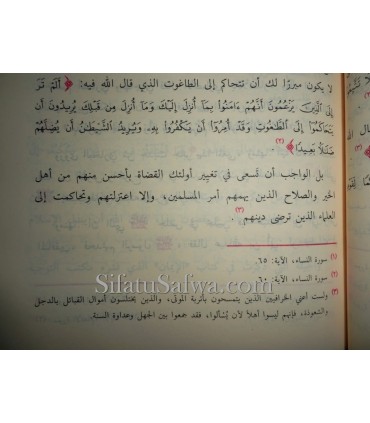 لا يكون مبررًا لك أن تتحاكم إلى الطاغوت الذي قال الله فيه: ﴿ أَلَمْ تَرَ
إِلَى ٱلَّذِينَ يَزْعُمُونَ أَنَّهُمْ ءَامَنُوا۟ بِمَآ أُنزِلَ إِلَيْكَ وَمَآ أُنزِلَ مِن قَبْلِكَ يُرِيدُونَ أَن
يَتَحَاكَمُوٓا۟ إِلَى ٱلطَّٰغُوتِ وَقَدْ أُمِرُوٓا۟ أَن يَكْفُرُوا۟ بِهِۦ وَيُرِيدُ ٱلشَّيْطَٰنُ أَن يُضِلَّهُمْ
ضَلَٰلًۢا بَعِيدًا ﴾(٢)
بل الواجب أن تسعى في تغيير أولئك القضاة بأحسن منهم من أهل
الخير والصلاح الذين يهمهم أمر المسلمين، وإلا اعتزلتهم وتحاكمت إلى
العلماء الذين ترضى دينهم(٣).
(١) سورة النساء، الآية: ٦٥.
(٢) سورة النساء، الآية: ٦٠.
(٣) ولست أعني الخرافيين الذين يتمسحون بأتربة الموتى، والذين يختلسون أموال القبائل بالدجل
والشعوذة، فإنهم ليسوا أهلاً لأن يُسألوا، فقد جمعوا بين الجهل وعداوة السنة.
SifatuSafwa.com